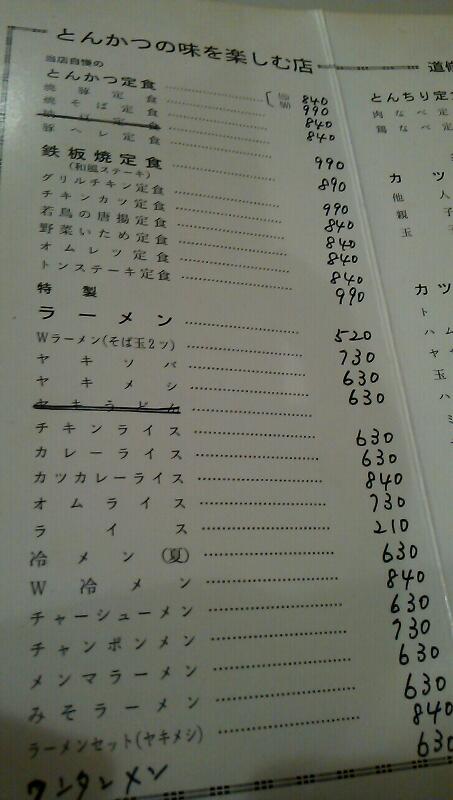 とんかつの味を楽しむ店
当店自慢の
とんかつ定食 840
990
焼豚定食 840
焼そば定食 840
豚ヘレ定食
鉄板焼定食 990
(和風ステーキ)
グリルチキン定食 890
チキンカツ定食 990
若鳥の唐揚定食 840
野菜いため定食 840
オムレツ定食 840
トンステーキ定食 840
特製 990
ラーメン 520
Wラーメン(そば玉2ツ) 730
ヤキソバ 630
ヤキメシ 630
ヤキうどん
チキンライス 630
カレーライス 630
カツカレーライス 840
オムライス 730
ライス 210
冷メン(夏) 630
W冷メン 840
チャーシューメン 630
チャンポンメン 730
メンマラーメン 630
みそラーメン 630
ラーメンセット(ヤキメシ) 840
ワンタンメン 630
道修
とんちり定
肉なべ定
鶏なべ定
カツ
他人
親子
玉子
カツ
ト
ハム
ヤ
玉
ハ
ミ